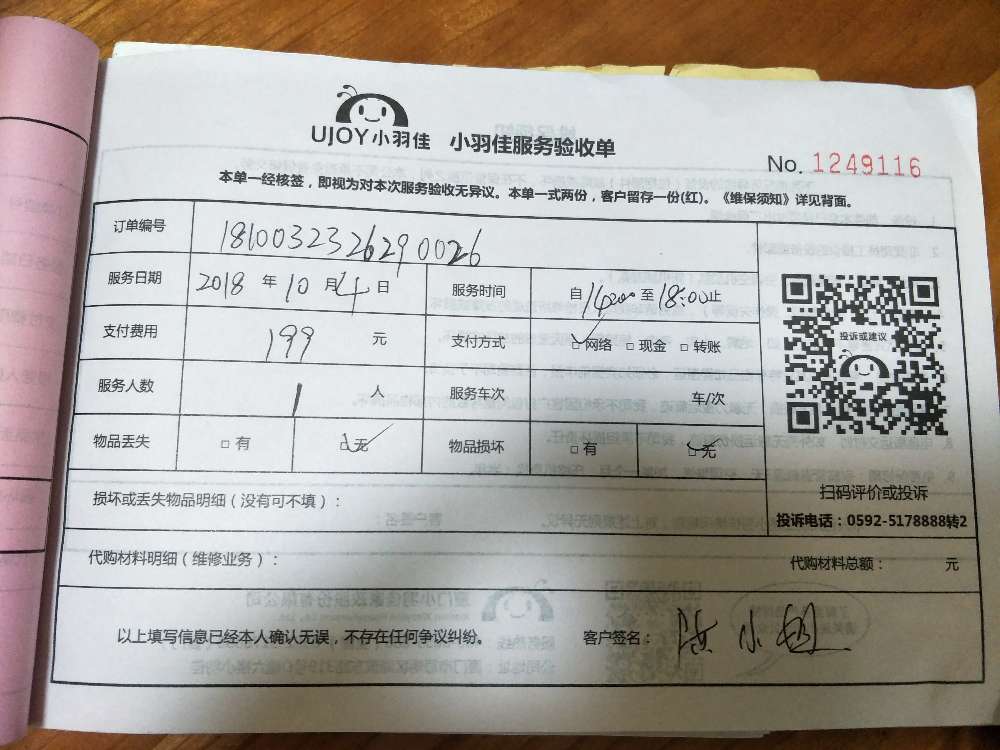 UJOY小羽佳 小羽佳服务验收单
No. 1249116
本单一经核签，即视为对本次服务验收无异议。本单一式两份，客户留存一份(红)。《维保须知》详见背面。
订单编号 1810032326290026
服务日期 2018 年 10 月 4 日 服务时间 自 14:00 至 18:00 止
支付费用 199 元 支付方式 ☑网络 □现金 □转账
服务人数 1 人 服务车次 车/次
物品丢失 □有 ☑无 物品损坏 □有 ☑无
投诉或建议
扫码评价或投诉
投诉电话：0592-5178888转2
损坏或丢失物品明细（没有可不填）：
代购材料明细（维修业务）： 代购材料总额： 元
以上填写信息已经本人确认无误，不存在任何争议纠纷。 客户签名： 小姐